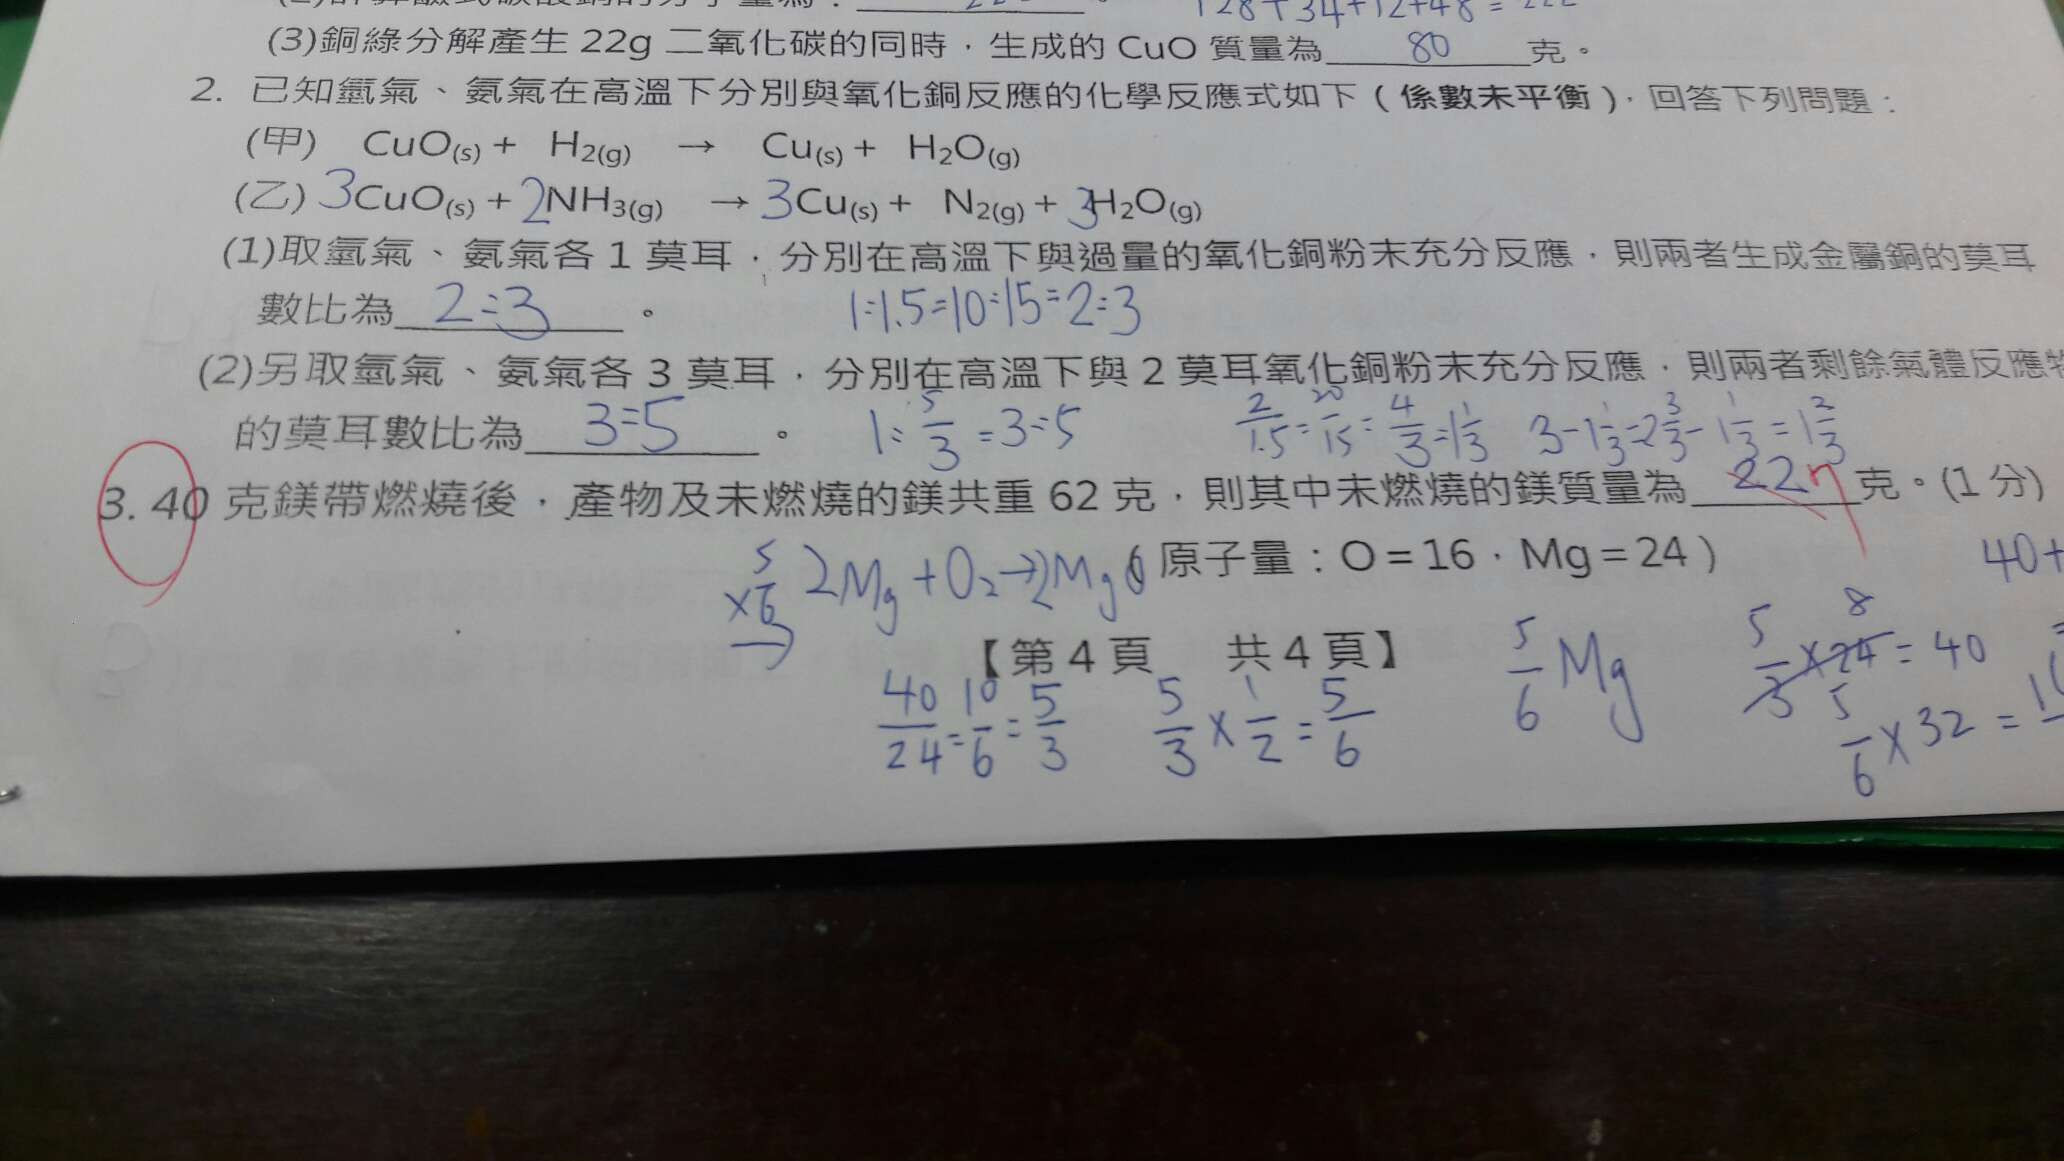 (3)銅綠分解產生 22g 二氧化碳的同時，生成的 CuO 質量為 80 克。
2. 已知氫氣、氨氣在高溫下分別與氧化銅反應的化學反應式如下(係數未平衡)，回答下列問題：
(甲) CuO(s) + H2(g) → Cu(s) + H2O(g)
(乙) 3CuO(s) + 2NH3(g) → 3Cu(s) + N2(g) + 3H2O(g)
(1)取氫氣、氨氣各 1 莫耳，分別在高溫下與過量的氧化銅粉末充分反應，則兩者生成金屬銅的莫耳
數比為 2:3 。 1:1.5=10:15=2:3
(2)另取氫氣、氨氣各 3 莫耳，分別在高溫下與 2 莫耳氧化銅粉末充分反應，則兩者剩餘氣體反應物
的莫耳數比為 3:5 。 1:5/3=3:5 2/1.5=20/15=4/3=1 1/3 3-1 1/3=2 3/3-1 1/3=1 2/3
3. 40 克鎂帶燃燒後，產物及未燃燒的鎂共重 62 克，則其中未燃燒的鎂質量為 22 7 克。(1 分)
×5/6 → 2Mg+O2→2MgO (原子量：O＝16，Mg＝24) 40+
【第 4 頁 共 4 頁】 5/6 Mg 5/3×24=40 8
40/24=10/6=5/3 5/3×1/2=5/6 5/6×32=